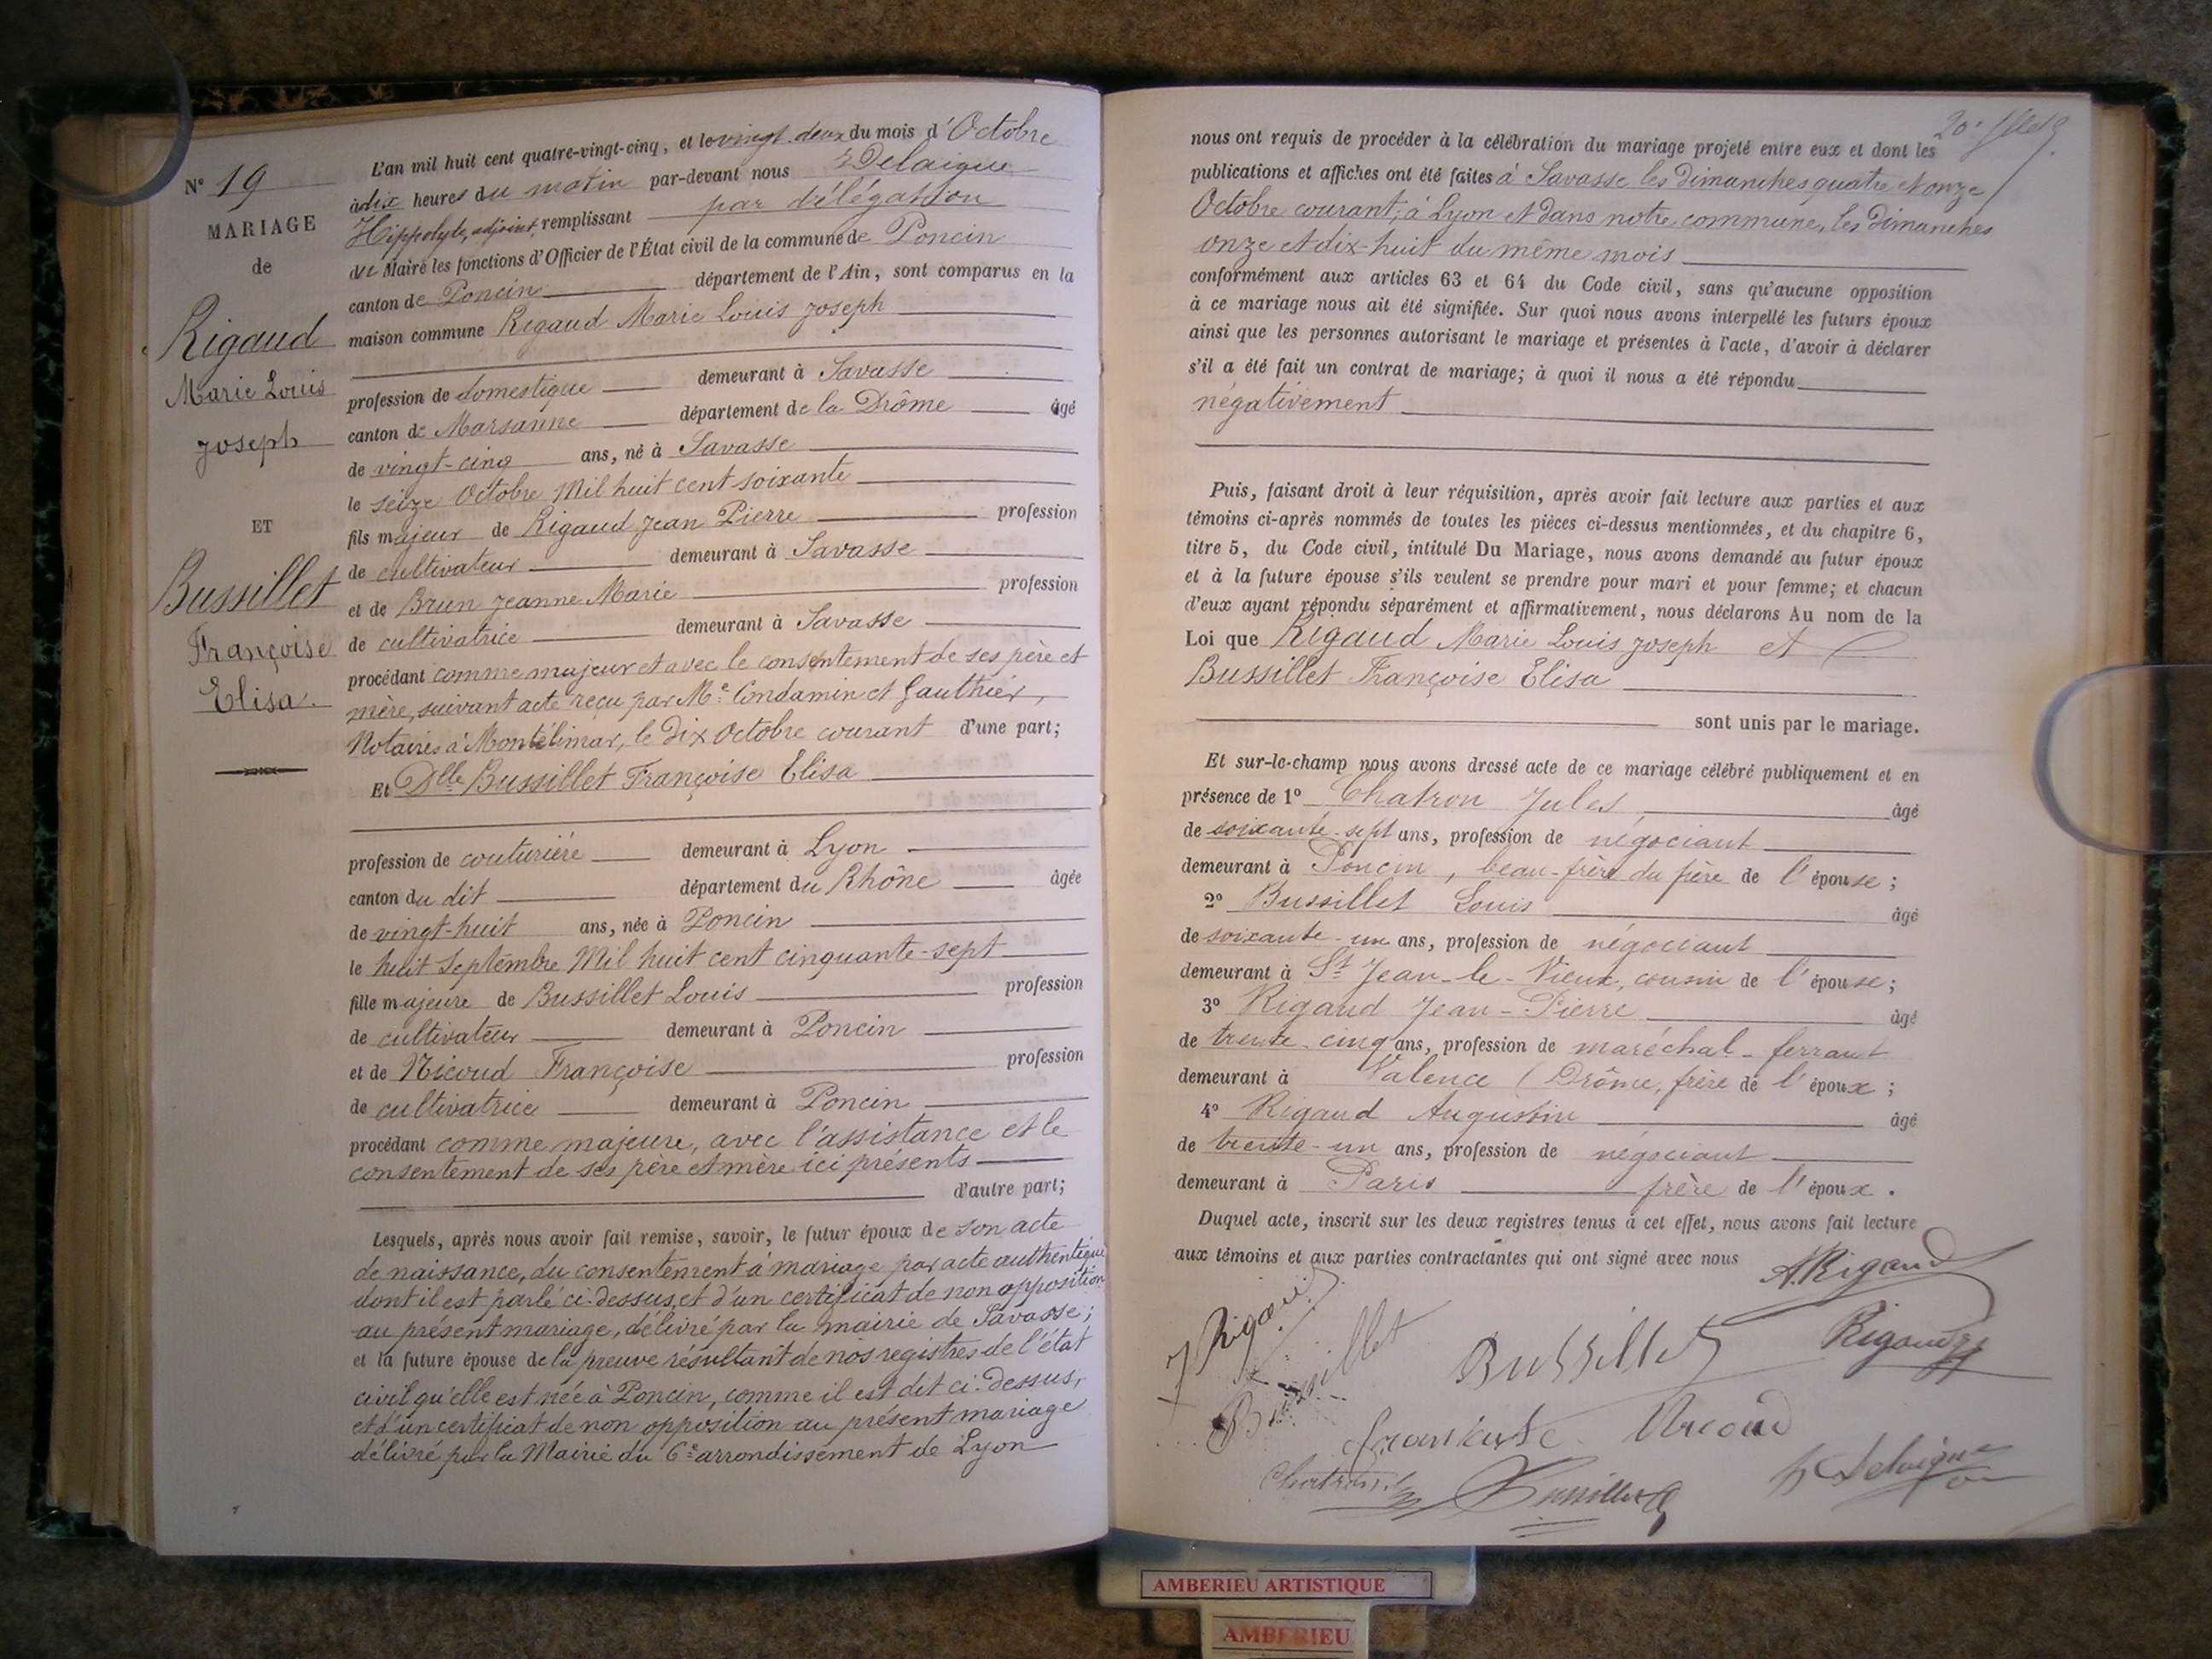 N° 19
MARIAGE
de
Rigaud
Marie Louis
Joseph
ET
Bussillet
Françoise
Elisa.
L'an mil huit cent quatre-vingt-cinq, et le vingt-deux du mois d'Octobre
à dix heures du matin par-devant nous Delaigue
Hippolyte, adjoint, remplissant par délégation
du Maire les fonctions d'Officier de l'État civil de la commune de Poncin
canton de Poncin département de l'Ain, sont comparus en la
maison commune Rigaud Marie Louis Joseph
profession de domestique demeurant à Savasse
canton de Marsanne département de la Drôme âgé
de vingt-cinq ans, né à Savasse
le seize Octobre Mil huit cent soixante
fils majeur de Rigaud Jean Pierre profession
de cultivateur demeurant à Savasse
et de Brun Jeanne Marie profession
de cultivatrice demeurant à Savasse
procédant comme majeur et avec le consentement de ses père et
mère, suivant acte reçu par Me Condamin et Gauthier,
Notaires à Montélimar, le dix Octobre courant d'une part;
Et Dlle Bussillet Françoise Elisa
profession de couturière demeurant à Lyon
canton du dit département du Rhône âgée
de vingt-huit ans, née à Poncin
le huit Septembre Mil huit cent cinquante-sept
fille majeure de Bussillet Louis profession
de cultivateur demeurant à Poncin
et de Nicoud Françoise profession
de cultivatrice demeurant à Poncin
procédant comme majeure, avec l'assistance et le
consentement de ses père et mère ici présents
d'autre part;
Lesquels, après nous avoir fait remise, savoir, le futur époux de son acte
de naissance, du consentement à mariage par acte authentique
dont il est parlé ci-dessus, et d'un certificat de non opposition
au présent mariage, délivré par la mairie de Savasse;
et la future épouse de la preuve résultant de nos registres de l'état
civil qu'elle est née à Poncin, comme il est dit ci-dessus,
et d'un certificat de non opposition au présent mariage
délivré par la Mairie du 6e arrondissement de Lyon
nous ont requis de procéder à la célébration du mariage projeté entre eux et dont les
publications et affiches ont été faites à Savasse les dimanches quatre et onze
Octobre courant, à Lyon et dans notre commune, les dimanches
onze et dix-huit du même mois
conformément aux articles 63 et 64 du Code civil, sans qu'aucune opposition
à ce mariage nous ait été signifiée. Sur quoi nous avons interpellé les futurs époux
ainsi que les personnes autorisant le mariage et présentes à l'acte, d'avoir à déclarer
s'il a été fait un contrat de mariage; à quoi il nous a été répondu
négativement
Puis, faisant droit à leur réquisition, après avoir fait lecture aux parties et aux
témoins ci-après nommés de toutes les pièces ci-dessus mentionnées, et du chapitre 6,
titre 5, du Code civil, intitulé Du Mariage, nous avons demandé au futur époux
et à la future épouse s'ils veulent se prendre pour mari et pour femme; et chacun
d'eux ayant répondu séparément et affirmativement, nous déclarons Au nom de la
Loi que Rigaud Marie Louis Joseph et
Bussillet Françoise Elisa
sont unis par le mariage.
Et sur-le-champ nous avons dressé acte de ce mariage célébré publiquement et en
présence de 1° Chatron Jules âgé
de soixante-sept ans, profession de négociant
demeurant à Poncin, beau-frère du père de l'épouse;
2° Bussillet Louis âgé
de soixante-un ans, profession de négociant
demeurant à St Jean-le-Vieux, cousin de l'épouse;
3° Rigaud Jean-Pierre âgé
de trente-cinq ans, profession de maréchal-ferrant
demeurant à Valence (Drôme, frère de l'époux;
4° Rigaud Augustin âgé
de trente-un ans, profession de négociant
demeurant à Paris frère de l'époux.
Duquel acte, inscrit sur les deux registres tenus à cet effet, nous avons fait lecture
aux témoins et aux parties contractantes qui ont signé avec nous
A. Rigaud
J Rigaud
Bussillet
Bussillet
Rigaud
Nicoud
Chatron
Bussillet
h Delaigue
AMBERIEU ARTISTIQUE
AMBERIEU